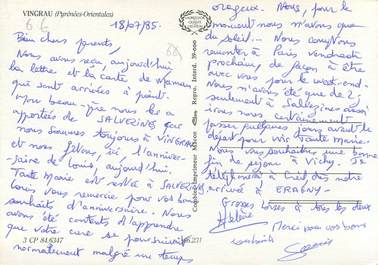 VINGRAU (Pyrénées-Orientales)
18/07/85.
Bien chers parents,
Nous avons reçu, aujourd'hui
la lettre et la carte de Maman
qui sont arrivées à
Mon beau-père nous les a
apportées de SALVEZINES car
nous sommes toujours à VINGRAU
et nous fêtons, ici, l'anniver-
saire de Louis, aujourd'hui.
Tante Marie est restée à SALVEZINES
Louis vous remercie pour vos bons
souhaits d'anniversaire. Nous
avons été contents d'apprendre
que votre cure se poursuivait
normalement malgré un temps
3 CP 84.6347
orageux. Nous, pour le
moment nous n'avons que
du soleil... Nous
remonter à Paris vendredi
prochain, de façon à être
avec vous pour le week-end.
Nous n'avons été que de
seulement à Salvezines aussi
irons nous certainement
passer quelques jours avant le
départ pour voir Tante Marie.
Nous vous souhaitons une bonne
fin de séjour à Vichy. Je
téléphonerai à Creil dès notre
arrivée à ERAGNY.
Grosses bises à tous les deux
Hélène
Merci pour vos bons
souhaits
Louis